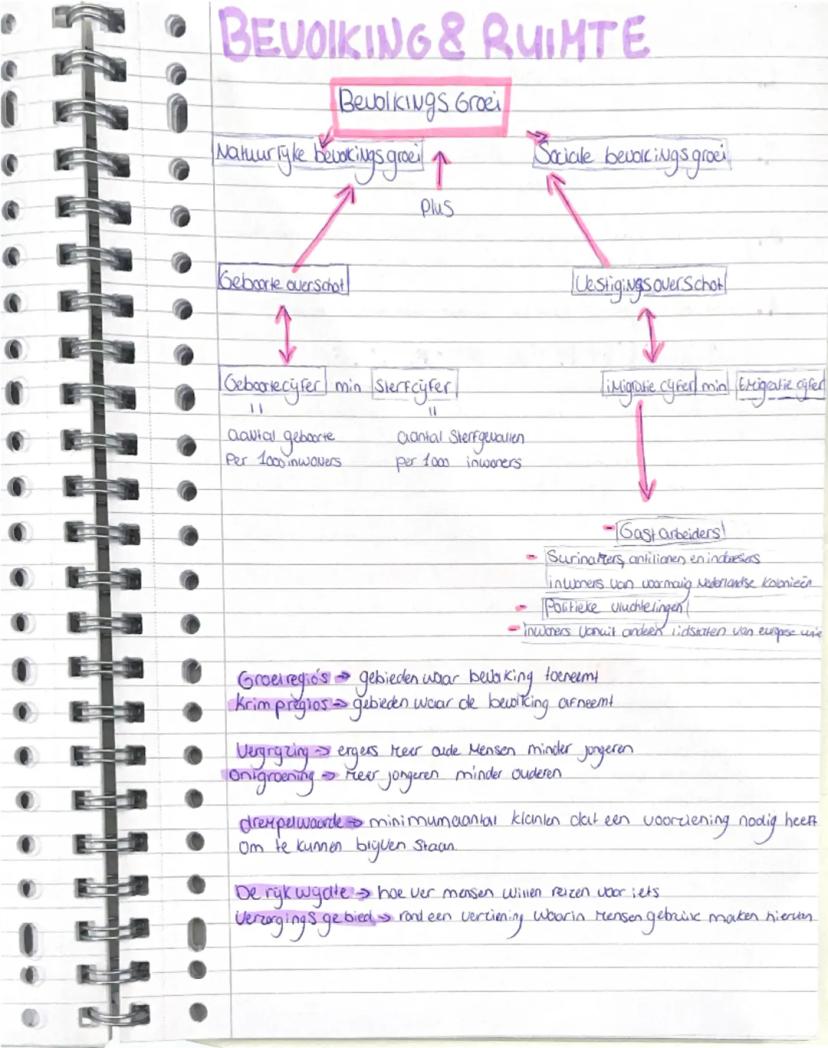 BEVOLKING & RUIMTE
Bevolkings Groei
Natuurlijke bevolkingsgroei
Sociale bevolkingsgroei
plus
Geboorte overschot
Vestigingsoverschot
Geboortecijfer min Sterfcijfer
imigratie cijfer min Emigratie cijfer
"
"
aantal geboorte
aantal sterfgevallen
Per 1000 inwoners
per 1000 inwoners
- Gastarbeiders
- Surinamers, antilianen en indonesiers
inwoners van voormalig Nederlandse kolonieën
- Politieke vluchtelingen
- inwoners vanuit andere lidstaten van europese unie
Groeiregio's → gebieden waar bevolking toeneemt
Krimpregios → gebieden waar de bevolking afneemt
Vergrijzing → ergers meer oude mensen minder jongeren
Ontgroening → meer jongeren minder ouderen
drempelwaarde → minimumaantal klanten dat een voorziening nodig heeft
om te kunnen blijven staan
De rijkwijdte → hoe ver mensen willen reizen voor iets
Verzorgings gebied → rond een verziening waarin mensen gebruik maken hiervan